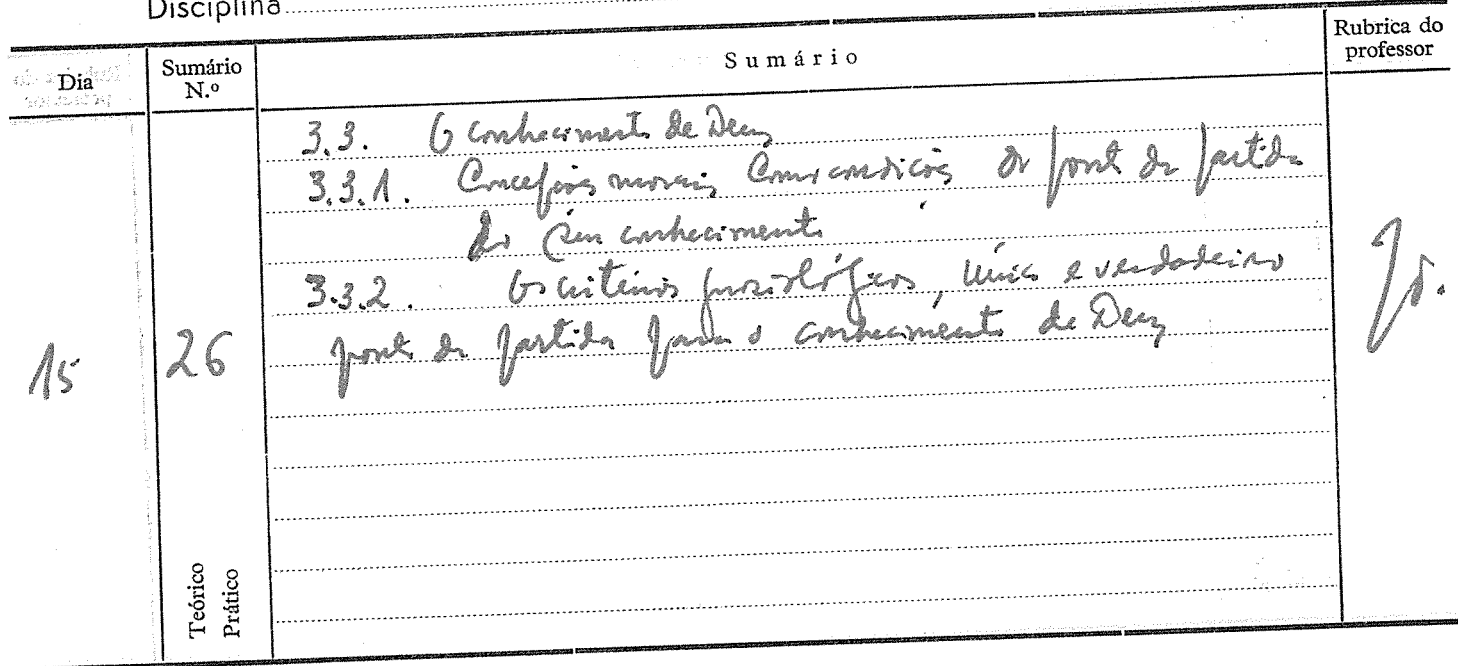 Disciplina
Dia
Sumário N.º
Sumário
Rubrica do professor
3.3. O conhecimento de Deus
3.3.1. Concepções morais como condições do ponto de partida
do seu conhecimento
3.3.2. Os critérios, único e verdadeiro
ponto de partida para o conhecimento de Deus
15
26
Teórico
Prático